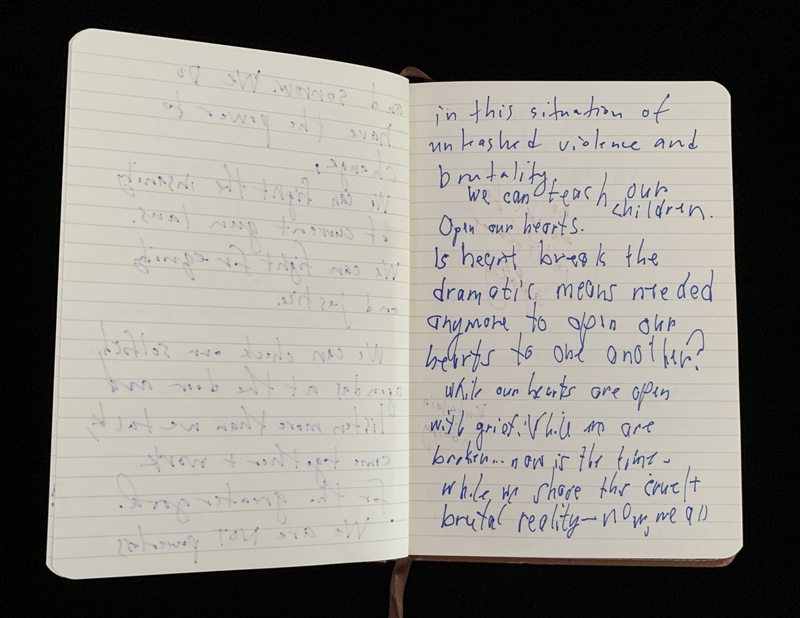 and sorrow. We Do
have the power to
change.
We can fight the insanity
of current gun laws.
We can fight for equity
and justice.
We can check our selfish
agendas at the door and
listen more than we talk,
come together + work
for the greater good.
We are NOT powerless
in this situation of
unleashed violence and
brutality.
We can teach our
children.
Open our hearts.
Is heart break the
dramatic means needed
anymore to open our
hearts to one another?
While our hearts are open
with grief. While we are
broken... now is the time.
While we share this cruel +
brutal reality -